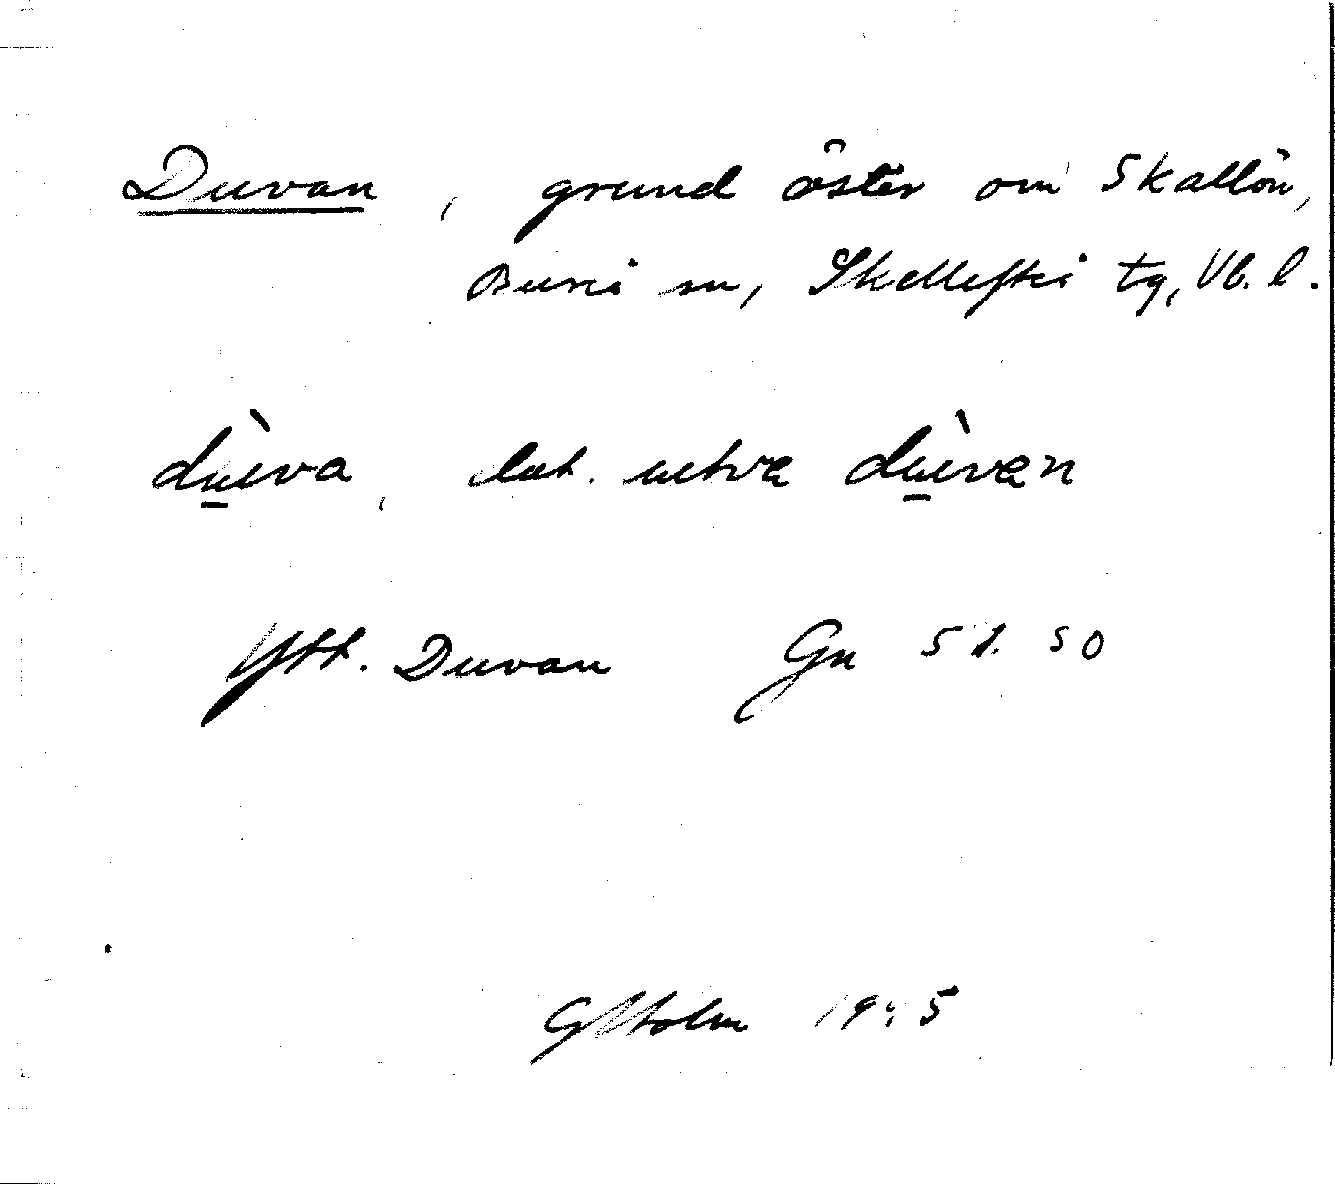 Duvan, grund öster om Skallön,
Bureå sn, Skellefteå tg, Vb. l.
dùva, dat. utva dùvan
Jfr. Duvan Gn 51. 50
GHolm 1945